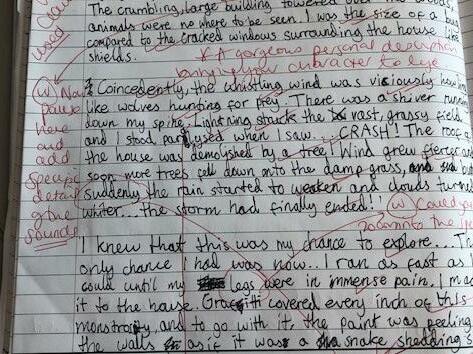 The crumbling, large building towered over the
animals were no where to be seen. I was the size of a bug
compared to the cracked windows surrounding the house like
shields.
* A gorgeous personal description
bringing your character to life
Coincedently, the whistling wind was viciously
like wolves hunting for prey. There was a shiver
down my spine. Lightning struck the vast, grassy field
and I stood when I saw... CRASH! The roof
the house was demolished by a tree! Wind grew fiercer and
soon more trees fell down onto the damp grass,
suddenly the rain started to weaken and clouds
whiter... the storm had finally ended!!
W Now
pause
here
and
add
specific
detail
of the
sounds
W Could you
zoom into the
I knew that this was my chance to explore...
only chance I had was now... I ran as fast as I
could until my legs were in immense pain. I
it to the house. Graffiti covered every inch of this
monstrosity, and to go with it, the paint was peeling
the walls as if it was a snake shedding